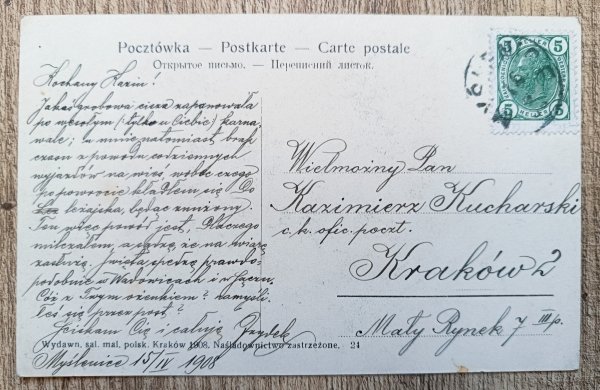 Pocztówka — Postkarte — Carte postale
Открытое письмо. — Переписний листок.
Kochany Kaziu!
Jakaś grobowa cisza zapanowała
po wesołym (tylko u Ciebie) karna-
wale; u mnie natomiast brak
czasu z powodu codziennych
wyjazdów na wieś, wobec czego
po powrocie kładłem się do
łóżka, będąc znużony.
Ten więc powód jest, dlaczego
milczałem, a sądzę, że na
zasłużę. Święta spędzę prawdo-
podobnie w Wadowicach i w
Cóż z Twym ożenkiem? namyśli-
łeś się przez post?
Ściskam Cię i całuję Frydek
Myślenice 15/IV 1908
Wielmożny Pan
Kazimierz Kucharski
c. k. ofic. poczt.
Kraków 2
Mały Rynek 7 III p.
Wydawn. sal. mal. polsk. Kraków 1908. Naśladownictwo zastrzeżone. 21
5 5
5 5
HELLER